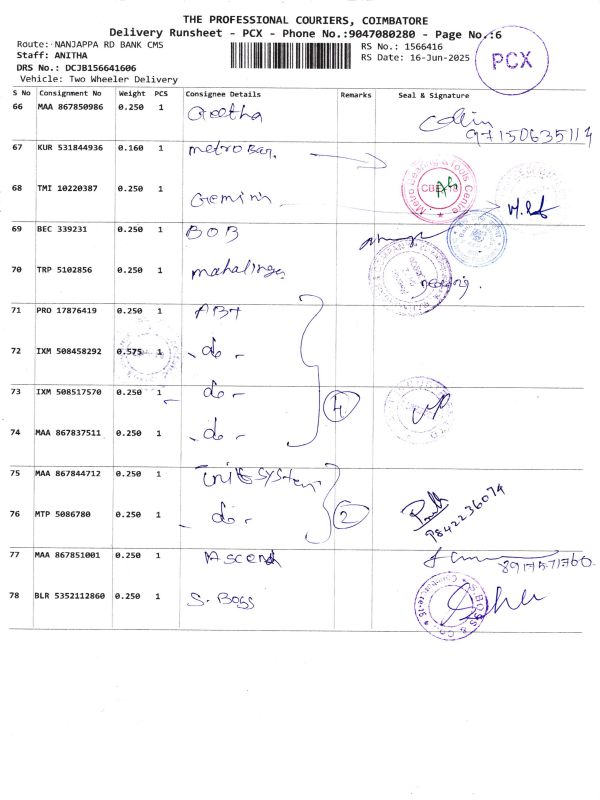 THE PROFESSIONAL COURIERS, COIMBATORE
Delivery Runsheet - PCX - Phone No.:9047080280 - Page No.:6
Route: NANJAPPA RD BANK CMS
RS No.: 1566416
Staff: ANITHA
RS Date: 16-Jun-2025
PCX
DRS No.: DCJB156641606
Vehicle: Two Wheeler Delivery
S No Consignment No Weight PCS Consignee Details Remarks Seal & Signature
66 MAA 867850986 0.250 1 Geetha
97150635114
67 KUR 531844936 0.160 1 Metro Bea.
Metro Bearing & Tools Centre
68 TMI 10220387 0.250 1 Gemini
69 BEC 339231 0.250 1 BOB
70 TRP 5102856 0.250 1 mahalinga
71 PRO 17876419 0.250 1 ABT
72 IXM 508458292 0.575 1 - do -
73 IXM 508517570 0.250 1 - do -
4
74 MAA 867837511 0.250 1 - do -
75 MAA 867844712 0.250 1 Unik System
76 MTP 5086780 0.250 1 - do -
2
77 MAA 867851001 0.250 1 Ascend
78 BLR 5352112860 0.250 1 S. Boss
S.BOSS & Co.